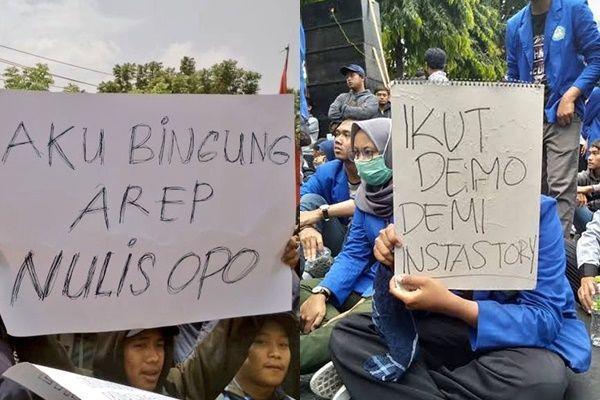 AKU BINGUNG
AREP
NULIS OPO
IKUT
DEMO
DEMI
INSTASTORY